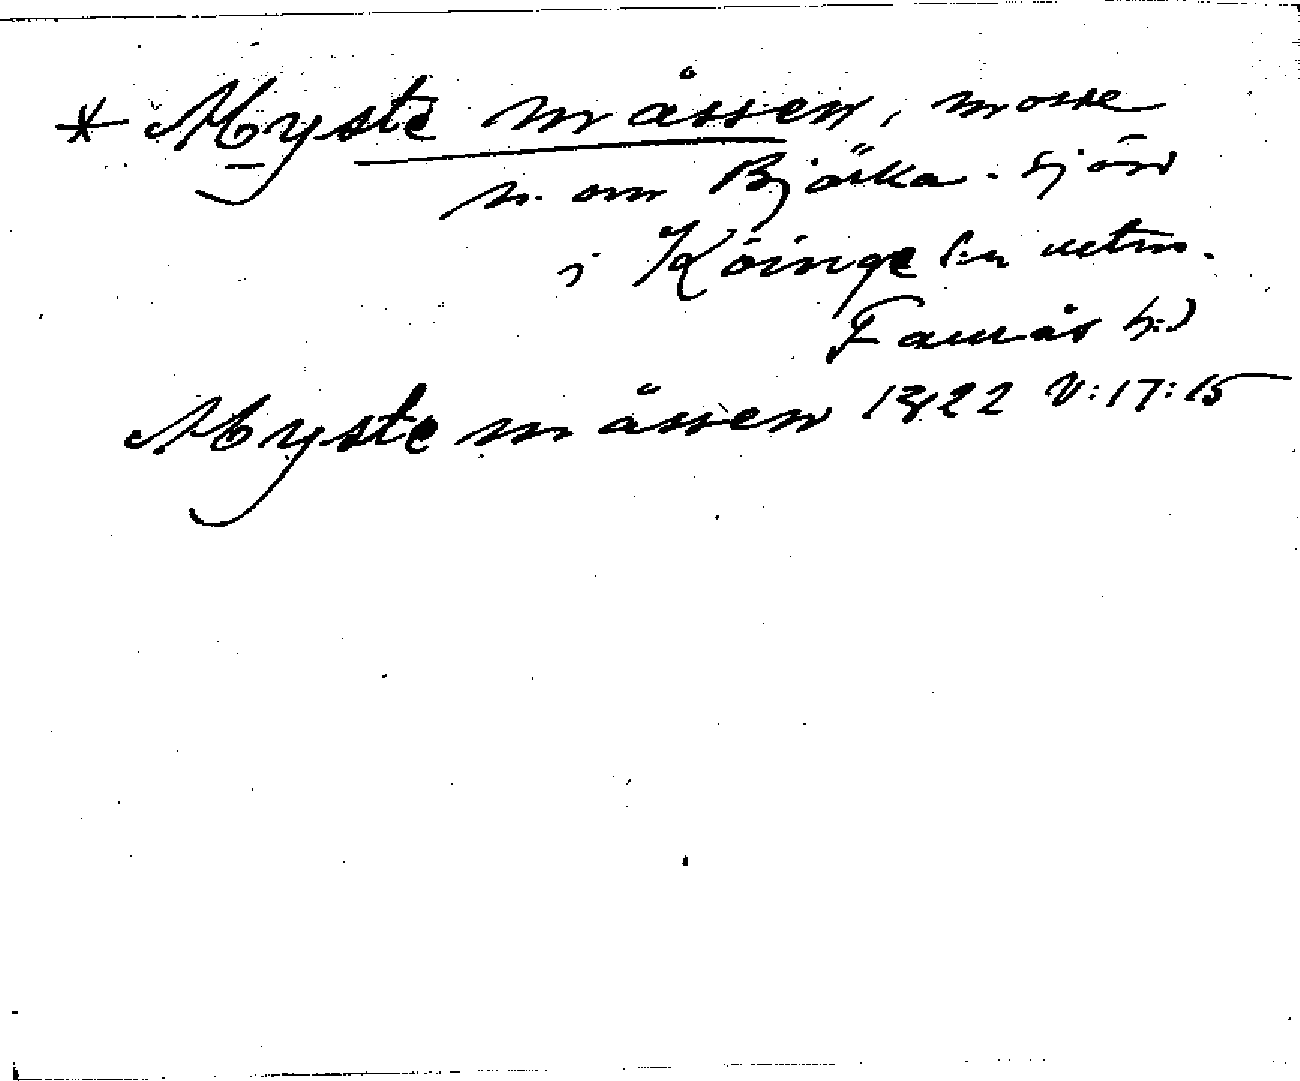 * Myste måssen, mosse
n. om Björka-sjön
i Köinge l:a utm.
Faurås h:d
Myste måssen 1822 V:17:15